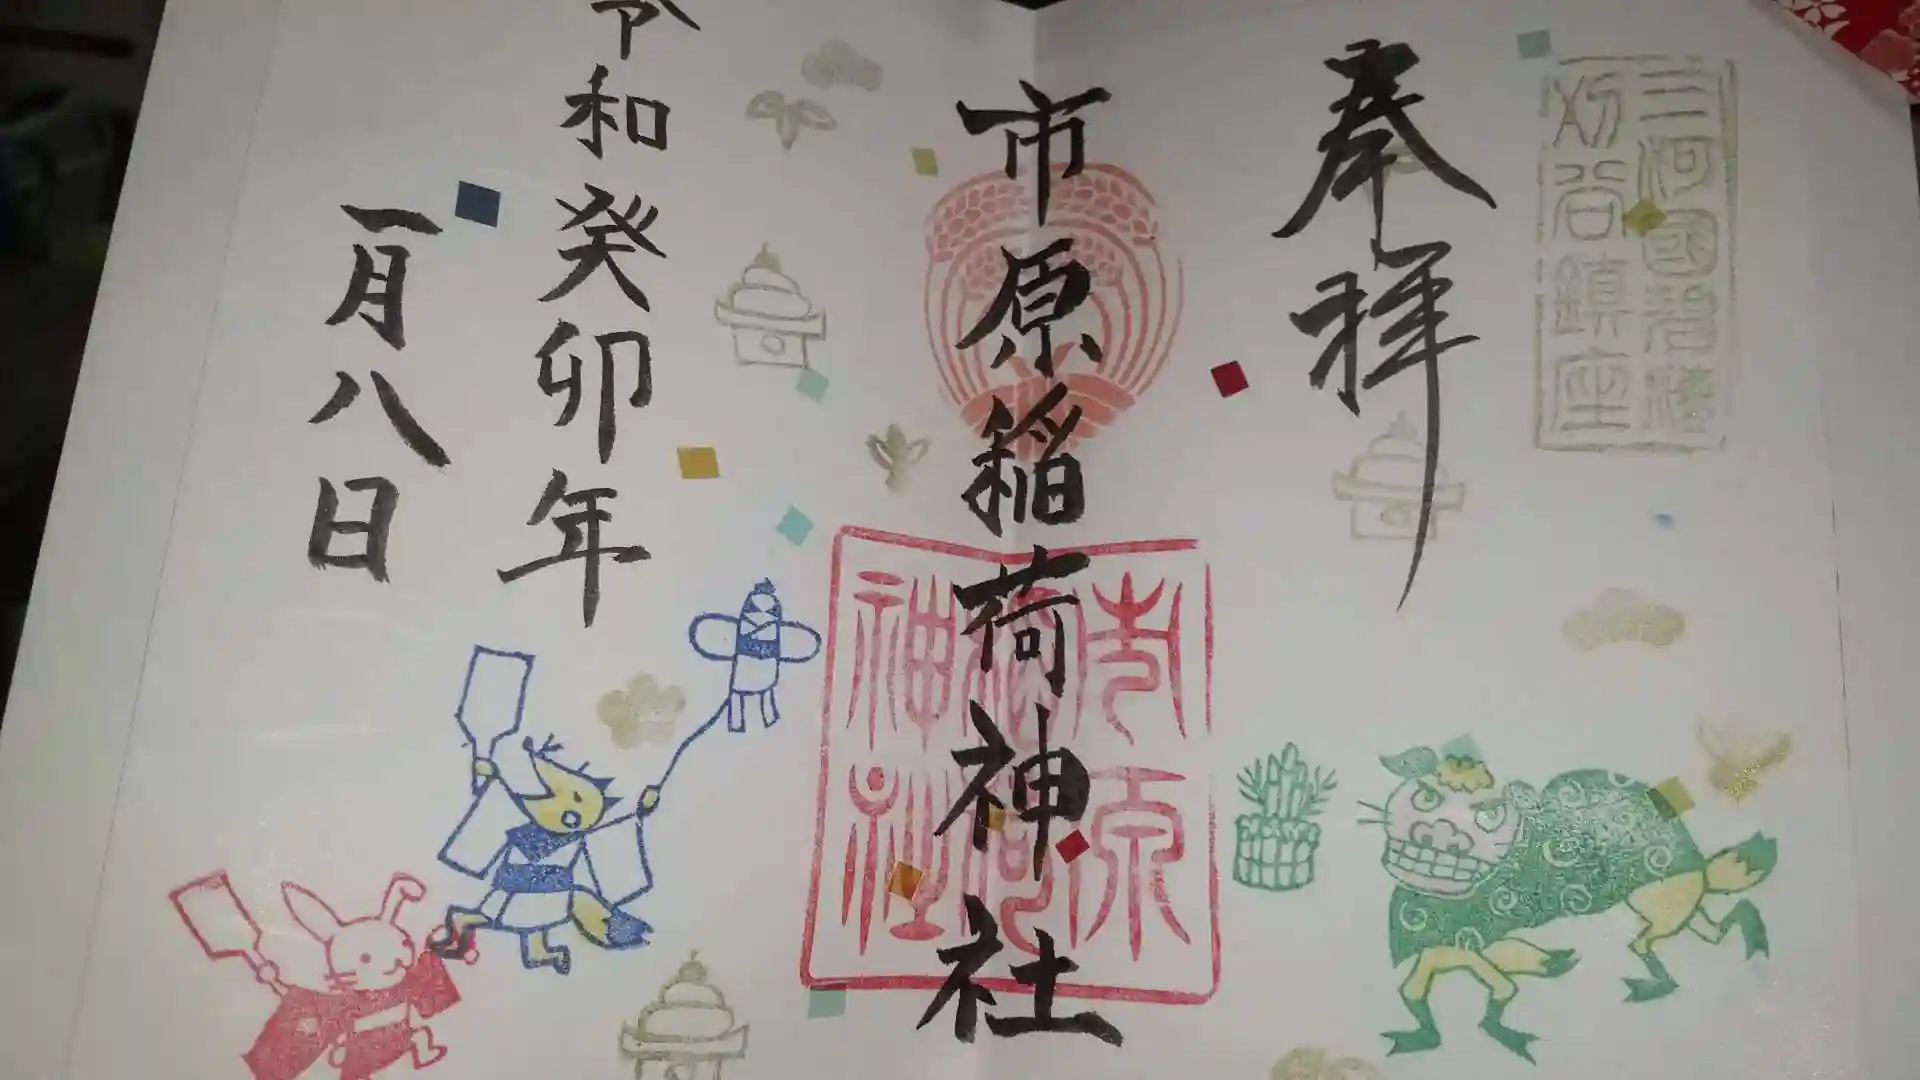 三河國碧海
刈谷鎮座
奉拝
市原稲荷神社
市原
稲荷
神社
令和癸卯年
一月八日